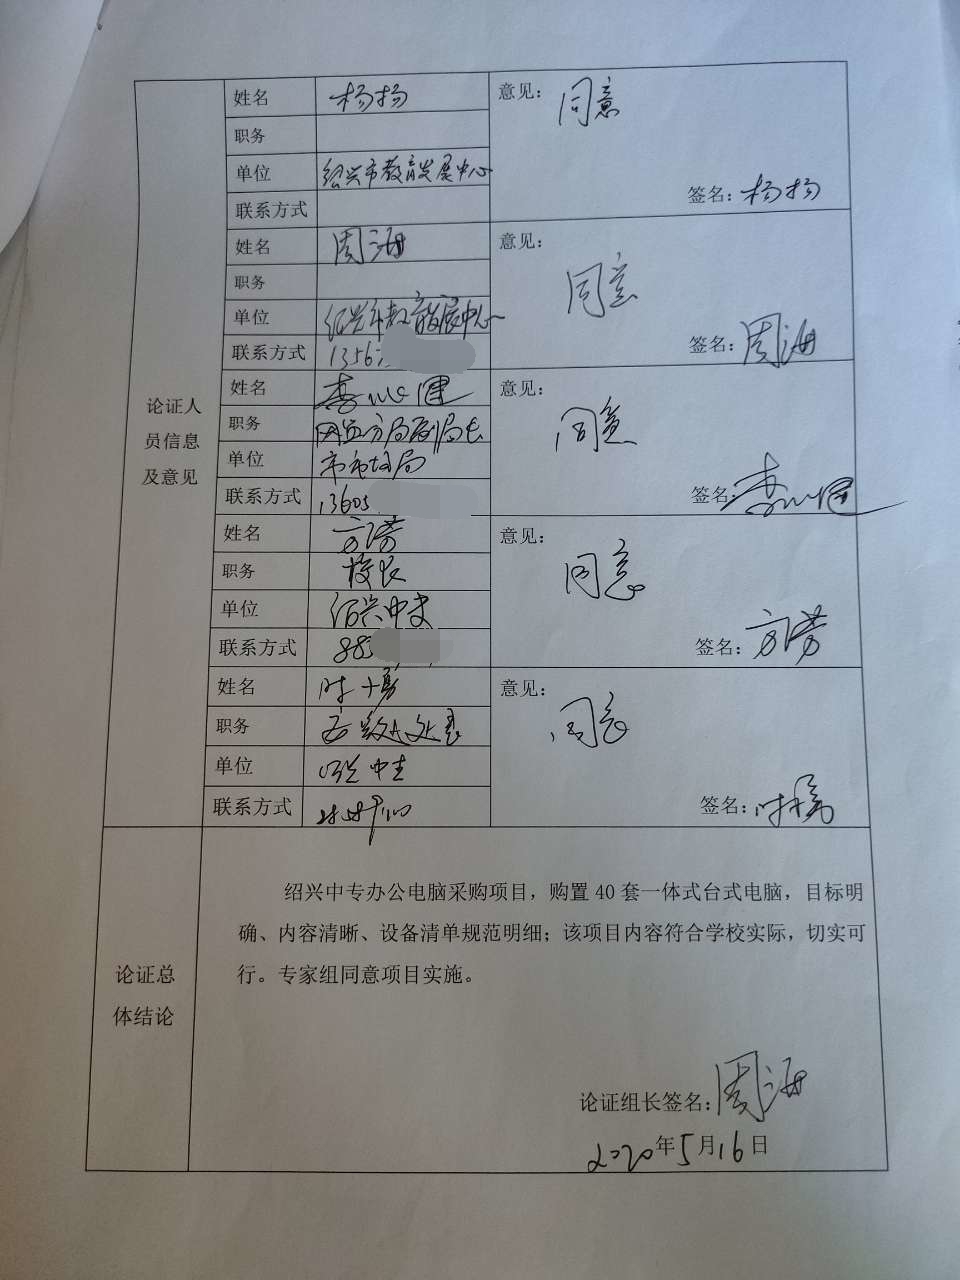 姓名 杨扬
意见：同意
职务
单位 绍兴市教育发展中心
签名：杨扬
联系方式
姓名 周海
意见：同意
职务
单位 绍兴市教育发展中心
签名：周海
联系方式 13567
姓名
意见：同意
职务
单位
签名：
联系方式 13605
姓名 方涛
意见：同意
职务 校长
单位 绍兴中专
签名：方涛
联系方式 885
姓名
意见：同意
职务
单位 绍兴中专
签名：
联系方式
论证人
员信息
及意见
论证总
体结论
绍兴中专办公电脑采购项目，购置40套一体式台式电脑，目标明
确、内容清晰、设备清单规范明细；该项目内容符合学校实际，切实可
行。专家组同意项目实施。
论证组长签名：周海
2020年5月16日